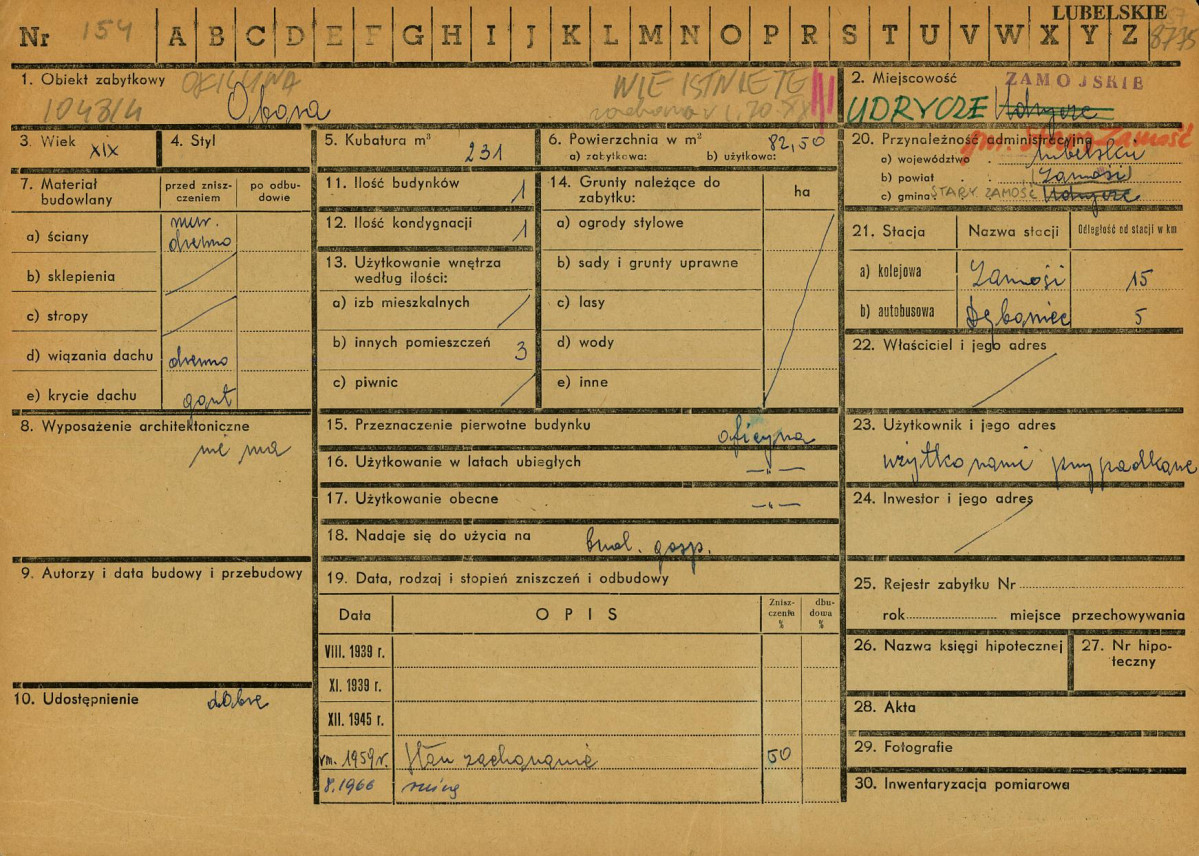 LUBELSKIE
Nr 154 A B C D E F G H I J K L M N O P R S T U V W X Y Z 8775
1. Obiekt zabytkowy OFICYNA
NIE ISTNIEJE
1043/4 Obora
2. Miejscowość ZAMOJSKIE
UDRYCZE Udrycze
gm. Stary Zamość
3. Wiek XIX
4. Styl
5. Kubatura m³ 231
6. Powierzchnia w m² 82,50
a) zabytkowa: b) użytkowa:
20. Przynależność administracyjna
a) województwo lubelskie
b) powiat Zamość
c) gmina STARY ZAMOŚĆ Udrycze
7. Materiał budowlany
przed zniszczeniem
po odbudowie
a) ściany mur. drewno
b) sklepienia
c) stropy
d) wiązania dachu drewno
e) krycie dachu gont
8. Wyposażenie architektoniczne
nie ma
9. Autorzy i data budowy i przebudowy
10. Udostępnienie dobre
11. Ilość budynków 1
12. Ilość kondygnacji 1
13. Użytkowanie wnętrza
według ilości:
a) izb mieszkalnych
b) innych pomieszczeń 3
c) piwnic
14. Grunty należące do
zabytku:
ha
a) ogrody stylowe
b) sady i grunty uprawne
c) lasy
d) wody
e) inne
15. Przeznaczenie pierwotne budynku oficyna
16. Użytkowanie w latach ubiegłych —„—
17. Użytkowanie obecne —„—
18. Nadaje się do użycia na bud. gosp.
19. Data, rodzaj i stopień zniszczeń i odbudowy
Data OPIS Zniszczenia % dbudowa %
VIII. 1939 r.
XI. 1939 r.
XII. 1945 r.
VIII. 1959 r. Stan zachowania 50
8.1966
21. Stacja Nazwa stacji Odległość od stacji w km
a) kolejowa Zamość 15
b) autobusowa 5
22. Właściciel i jego adres
23. Użytkownik i jego adres
użytkowany przypadkowe
24. Inwestor i jego adres
25. Rejestr zabytku Nr
rok miejsce przechowywania
26. Nazwa księgi hipotecznej
27. Nr hipoteczny
28. Akta
29. Fotografie
30. Inwentaryzacja pomiarowa